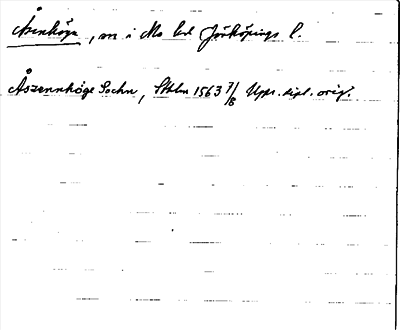 Åsenhöga, sn i Mo hd Jönköpings l.
Åszennhöge Sochn, Sthlm 1563 7/8 Uppr. dipl. orig.